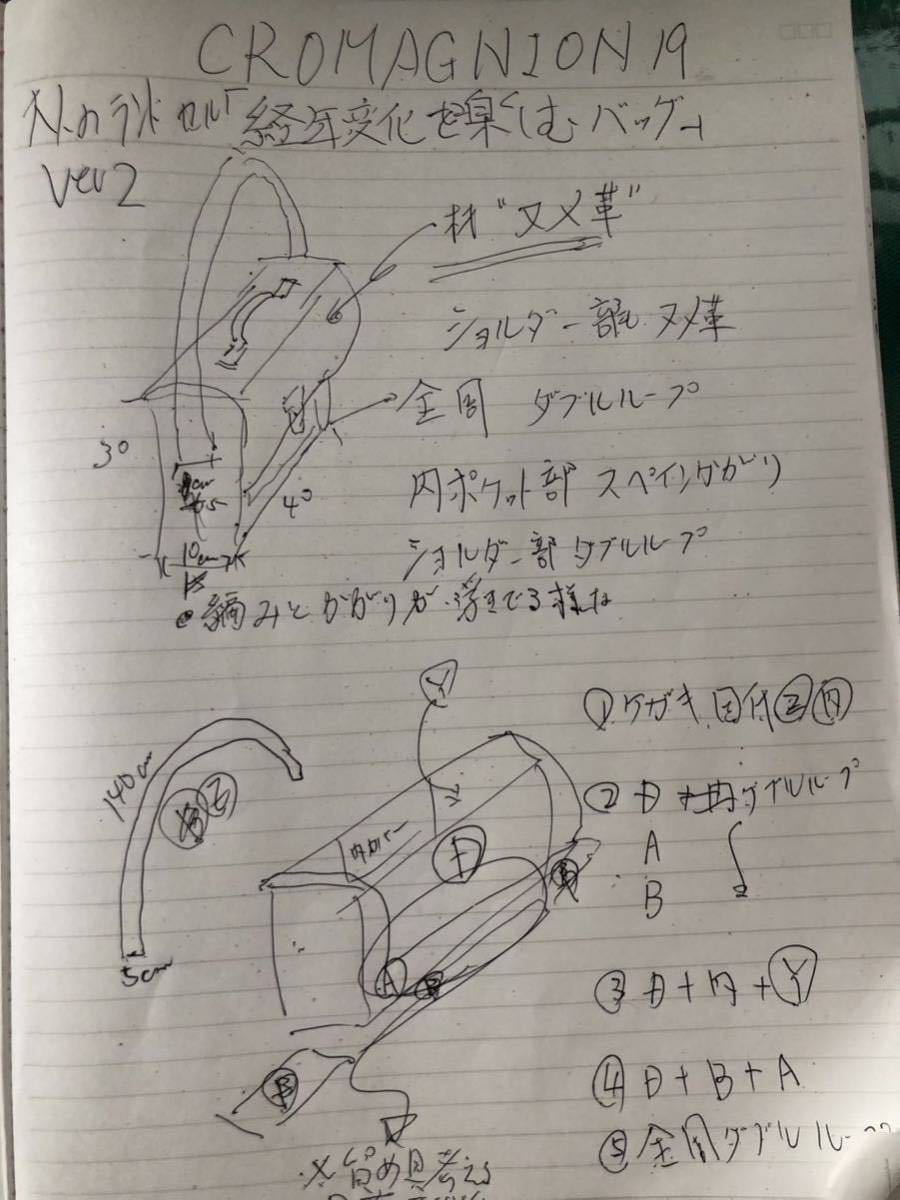 CROMAGNION 19
大人のランドセル「経年変化を楽しむバッグ」
Ver2
材"ヌメ革"
ショルダー部も ヌメ革
全周 ダブルループ
30
40
内ポケット部 スペイングがり
10cm
ショルダー部 ダブルループ
●編みとかがりが浮きでる様な
Y
①ケガキ
140cm
Z
② ダブルループ
内カバー
A
B
5cm
A
③ + + Y
B
④ D+B+A
⑤全周ダブルループ
※留め具考える